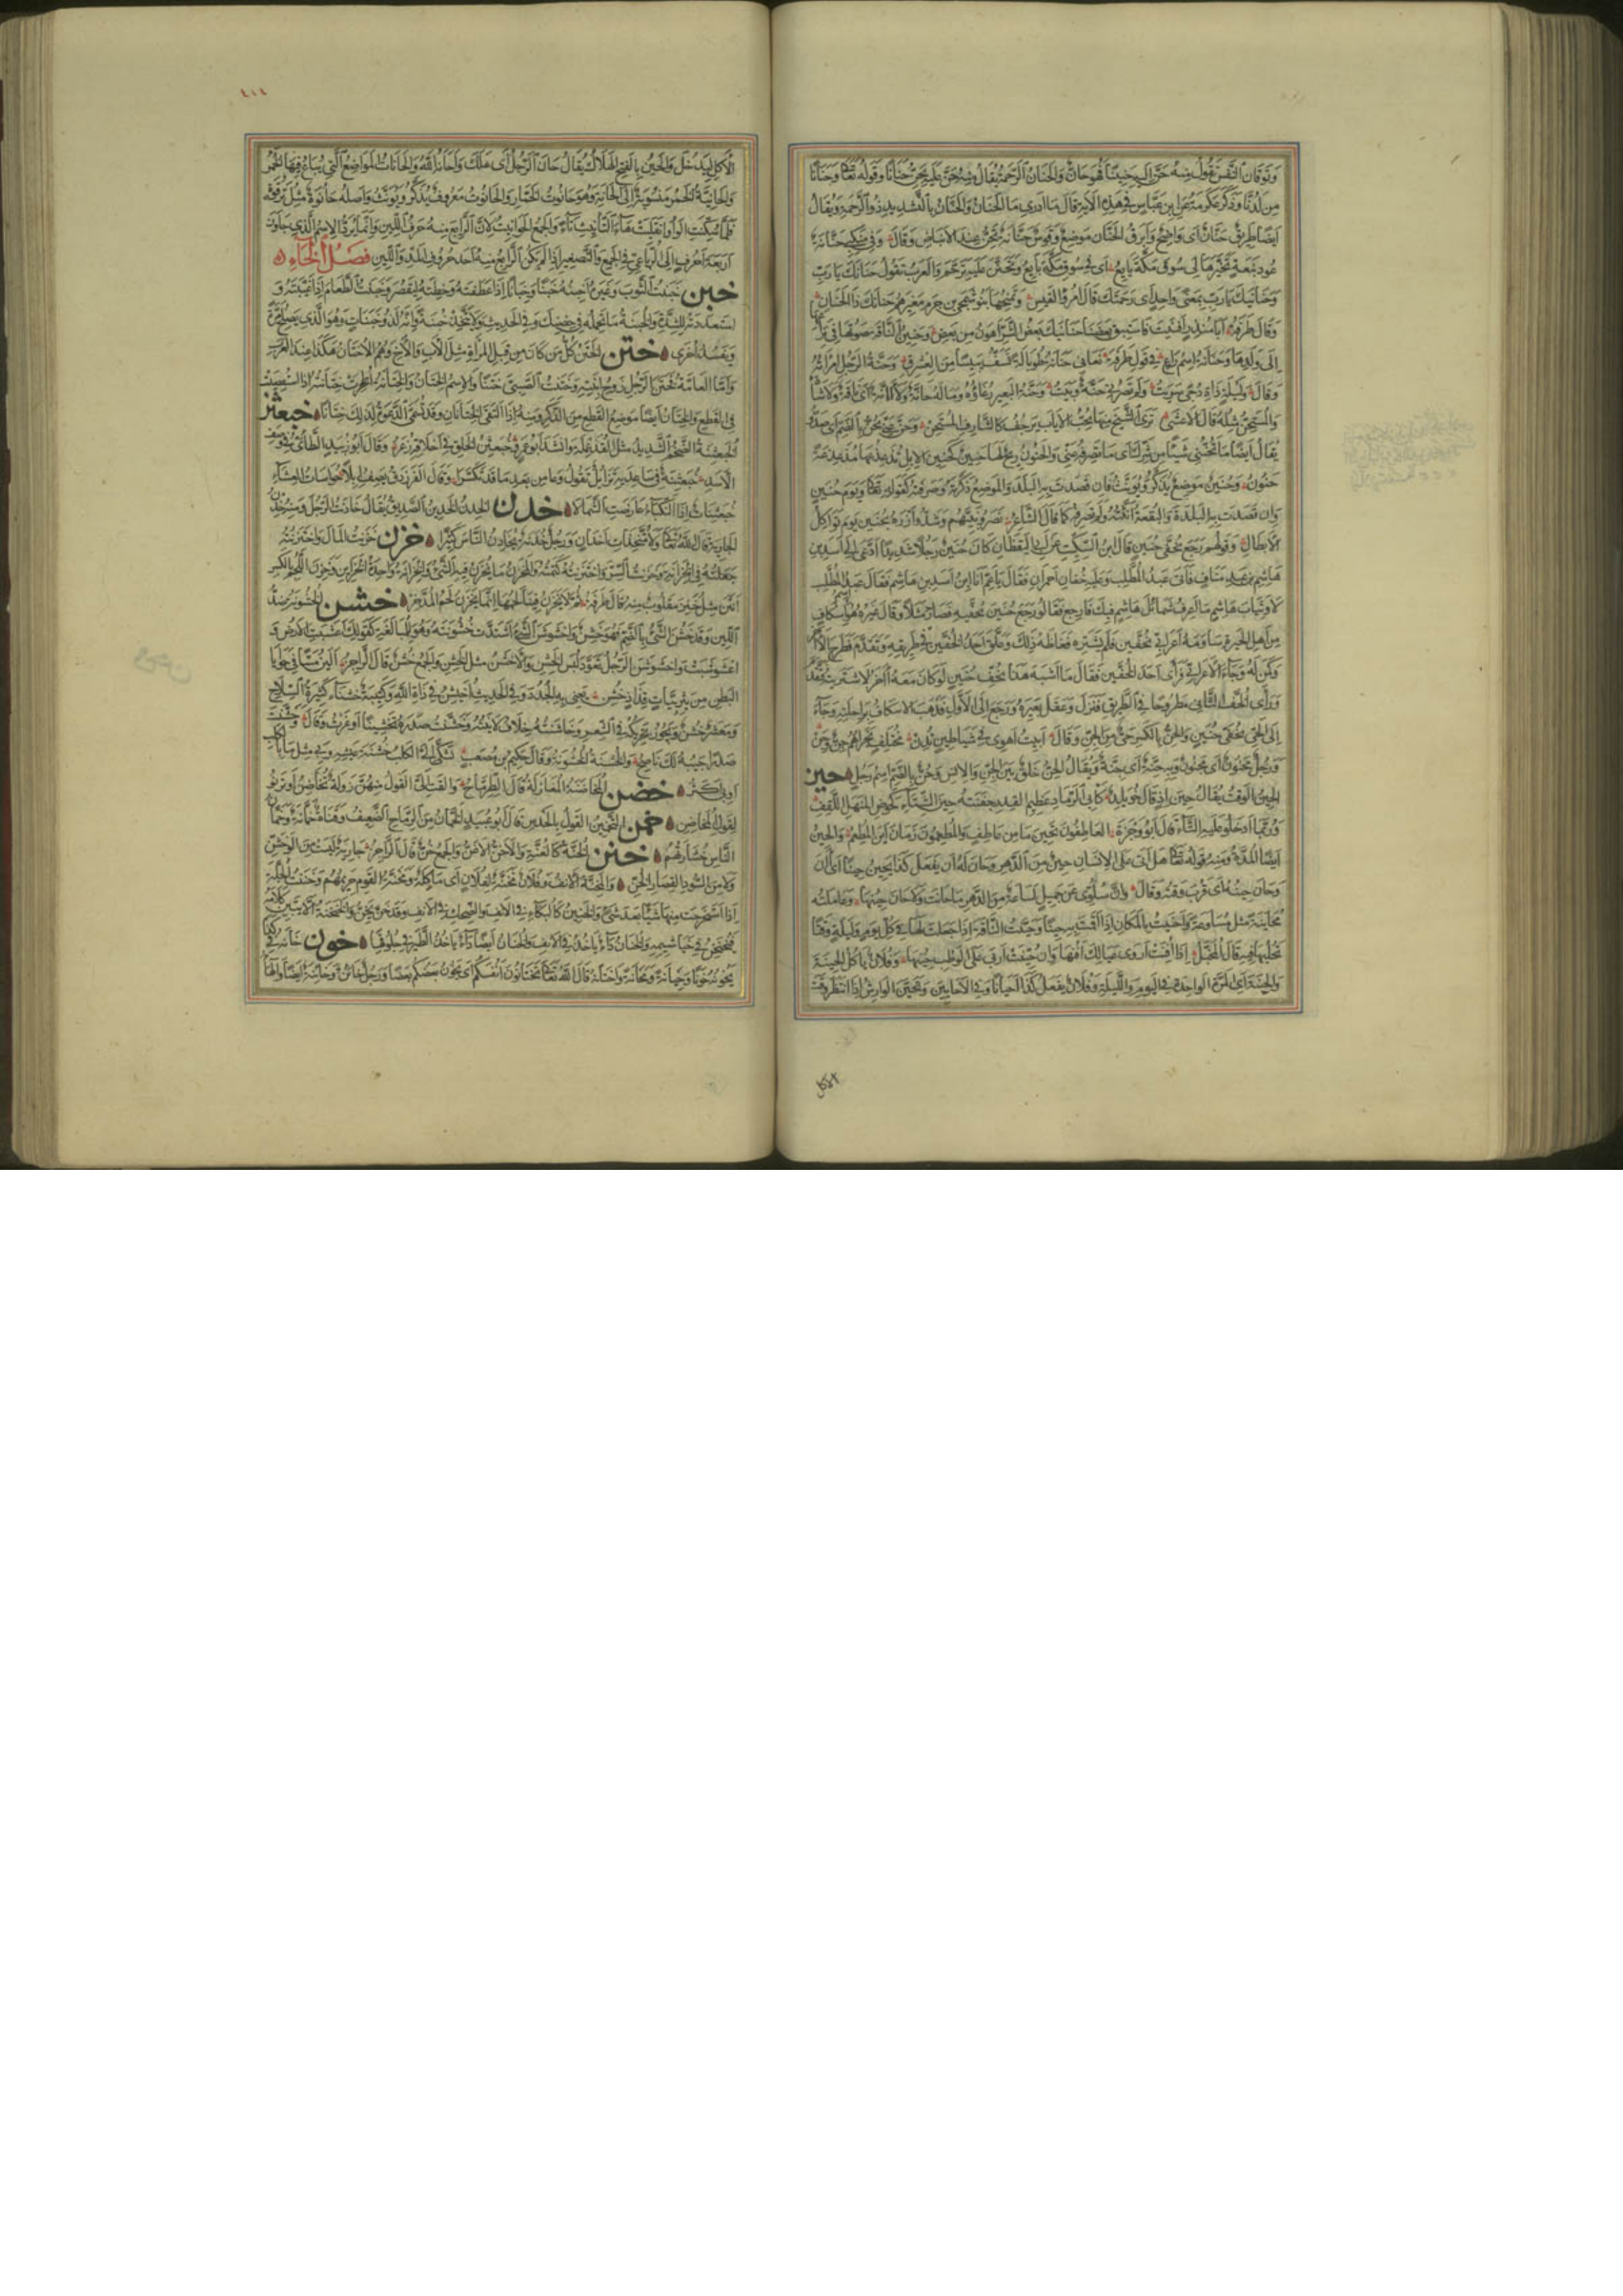 وتوقان النفس تقول منه حن اليه يحن حنينا فهو حان والحنان الرحمة يقال منه حن عليه يحن حنانا وقوله تعالى وحنانا
من لدنا وذكر عكرمة عن ابن عباس في هذه الآية قال ما ادري ما الحنان والحنان بالتشديد ذو الرحمة ويقال
ايضا طريق حنان اى واضح وابرق الحنان موضع وقوس حنانة تحن عند الانباض وقال وفي منكبي حنانة
عود نبعة تخيرها لي سوق مكة بايع اى في سوق مكة بايع وتحنن عليه ترحم والعرب تقول حنانك يا رب
وحنانيك يا رب بمعنى واحد اى رحمتك قال امرؤ القيس ويمنحها بنو شمجى بن جرم معيزهم حنانك ذا الحنان
وقال طرفة ابا منذر افنيت فاستبق بعضنا حنانيك بعض الشر اهون من بعض وحنين الناقة صوتها في
الى ولدها وحنانة اسم راع في قول طرفة نعاني حنانة طوبالة تسف يبيسا من العشرق وحنة الرجل امراته
وقال وليلة ذات دجى سريت ولم تصرني حنة وبيت وحنة البعير رغاؤه وما له حانة ولا آنة اى ناقة ولا شاة
والمستحن مثله قال الاعشى ترى الشيخ منها يحب الاياب يرجف كالشارف المستحن وحن عني يحن بالضم اى صد
يقال ايضا ما تحنني شيئا من شرك اى ما تصرفه عني والحنون ريح لها حنين كحنين الابل
حنون وحنين موضع يذكر ويؤنث فان قصدت به البلد والموضع ذكرته وصرفته كقوله تعالى ويوم حنين
وان قصدت به البلدة والبقعة انثته ولم تصرفه كما قال الشاعر نصروا نبيهم وشدوا ازره بحنين يوم تواكل
الابطال وقولهم رجع بخفي حنين قال ابن السكيت عن ابي اليقظان كان حنين رجلا شديدا ادعى الى اسد بن
هاشم بن عبد مناف فأتى عبد المطلب وعليه خفان احمران فقال يا عم انا ابن اسد بن هاشم فقال عبد المطلب
لا وثياب هاشم ما اعرف شمائل هاشم فيك فارجع فقالوا رجع حنين بخفيه فصار مثلا وقال غيره هو اسم اسكاف
من اهل الحيرة ساومه اعرابي بخفين فلم يشتره فغاظه ذلك وعلق احد الخفين في طريقه وتقدم فطرح الآخر
وكمن له وجاء الاعرابي فرأى احد الخفين فقال ما اشبه هذا بخف حنين لو كان معه آخر لاشتريته فتقدم
ورأى الخف الثاني مطروحا في الطريق فنزل وعقل بعيره ورجع الى الاول فذهب الاسكاف براحلته وجاء
الى الحي بخفي حنين والحن بالكسر حي من الجن وقال ابيت اهوي في شياطين ترن مختلف نجراهم جن وحن
ورجل محنون اى مجنون وبه حنة اى جنة ويقال الحن خلق بين الجن والانس وحن بالضم اسم رجل حين
الحين الوقت يقال حينئذ قال خويلد كابي الرماد عظيم القدر جفنته حين الشتاء كحوض المنهل اللقف
وربما ادخلوا عليه التاء قال ابو وجزة العاطفون تحين ما من عاطف والمطعمون زمان اين المطعم والحين
ايضا المدة ومنه قوله تعالى هل اتى على الانسان حين من الدهر وحان له ان يفعل كذا يحين حينا اى آن
وحان حينه اى قرب وقته وقال وان سلوي عن جميل لساعة من الدهر ما حانت ولا حان حينها وعاملته
محاينة مثل مساوعة واحينت بالمكان اذا اقمت به حينا وحينت الناقة اذا جعلت لها في كل يوم وليلة وقتا
تحلبها فيه قال المخبل اذا افنت اروى عيالك افنها وان حينت اربى على الوطب حينها وفلان يأكل الحينة
والحينة اى المرة الواحدة في اليوم والليلة وفلان يفعل كذا احيانا وفي الاحايين وتحين الوارش اذا انتظر وقت
الاكل
٤١١
الاكل ليدخل والحين بالفتح الهلاك يقال حان الرجل اى هلك واحانه الله والحانات المواضع التي يباع فيها الخمر
والحانية الخمر منسوبة الى الحانة وهو حانوت الخمار والحانوت معروف يذكر ويؤنث واصله حانوة مثل ترقوة
فلما سكنت الواو انقلبت هاء التأنيث تاء والجمع الحوانيت لان الرابع منه حرف اللين وانما يرد الاسم الذي جاوز
اربعة احرف الى الرباعي في الجمع والتصغير اذا لم يكن الرابع منه احد حروف المد واللين فصل الخاء
خبن خبنت الثوب وغيره اخبنه خبنا وخبانا اذا عطفته وخطته ليقصر وخبنت الطعام اذا غيبته و
استعددته للشدة والخبنة ما تحمله في حضنك وفي الحديث ولا يتخذ خبنة وانه لذو خبنات وهو الذي يصلح مرة
ويفسد اخرى ختن الختن كل من كان من قبل المرأة مثل الاب والاخ وهم الاختان هكذا عند العرب
واما العامة فختن الرجل زوج ابنته وختنت الصبي ختنا والاسم الختان والختانة
في القطع والختان ايضا موضع القطع من الذكر ومنه اذا التقى الختانان وقد تسمى الدعوة لذلك ختانا خبعثن
الخبعثنة الضخم الشديد مثل القذعملة وانشد ابو عمرو خبعثن الخلق في اخلاقه زعر وقال ابو زبيد الطائي في وصف
الاسد خبعثنة في ساعديه تزايل تقول وعى من بعد ما قد تكسرا وقال الفرزدق يصف ابلا حواسات العشاء
خبعثنات اذا النكباء عارضت الشمالا خدن الخدن والخدين الصديق يقال خادنت الرجل ومنه خدن
الجارية قال الله تعالى ولا متخذات اخدان ورجل خدنة يخادن الناس كثيرا خزن خزنت المال واختزنته
جعلته في الخزانة وخزنت السر واختزنته كتمته والمخزن ما يخزن فيه الشيء والخزانة واحدة الخزاين وخزن اللحم بالكسر
انتن مثل خنز مقلوب منه قال طرفة ثم لا يخزن فينا لحمها انما يخزن لحم المدخر خشن الخشونة ضد
اللين وقد خشن الشيء بالضم فهو خشن واخشوشن الشيء اشتدت خشونته وهو للمبالغة كقولك اعشبت الارض و
اعشوشبت واخشوشن الرجل تعود لبس الخشن والاخشن مثل الخشن والجمع خشن قال الراجز الين مسا في حوايا
البطن من يثربيات قذاذ خشن يعني به الجدد وفي الحديث اخيشن في ذات الله وكتيبة خشناء كثيرة السلاح
ومعشر خشن ويجوز تحريكه في الشعر وخاشنته خلاف لاينته وخشنت صدره تخشينا اوغرت وقال وخشنت
صدرا جيبه لك ناصح والخشنة الخشونة وقال حكيم بن مصعب تشكى الي الكلب خشنة عيشه وبي مثل ما بالكلب
او بي اكثر خضن المخاضنة المغازلة قال الطرماح والقت الي القول منهن زولة تخاضن او ترنو
لقول المخاضن خمن التخمين القول بالحدس قال ابو عبيد الخمان من الرماح الضعيف وقناة خمانة وخمان
الناس خشارتهم خنن الخنة كالغنة والاخن الاغن والجمع خن قال الراجز جارية ليست من الوخشن
ولا من السود القصار الخن والمخنة الانف وفلان مخنة لفلان اى مأكلة ومخنة القوم حريمهم وخننت الجلة
اذا استخرجت منها شيئا بعد شيء والخنين كالبكاء في الانف والضحك في الانف وقد خن يخن والخنخنة ان لا يبين كلامه
فيخنخن في خياشيمه والخنان داء يأخذ في الانف والخنان ايضا داء يأخذ الطير في حلوقها خون خانه في كذا
يخونه خونا وخيانة ومخانة واختانه قال الله تعالى تختانون انفسكم اى يخون بعضكم بعضا ورجل خائن وخائنة ايضا والهاء